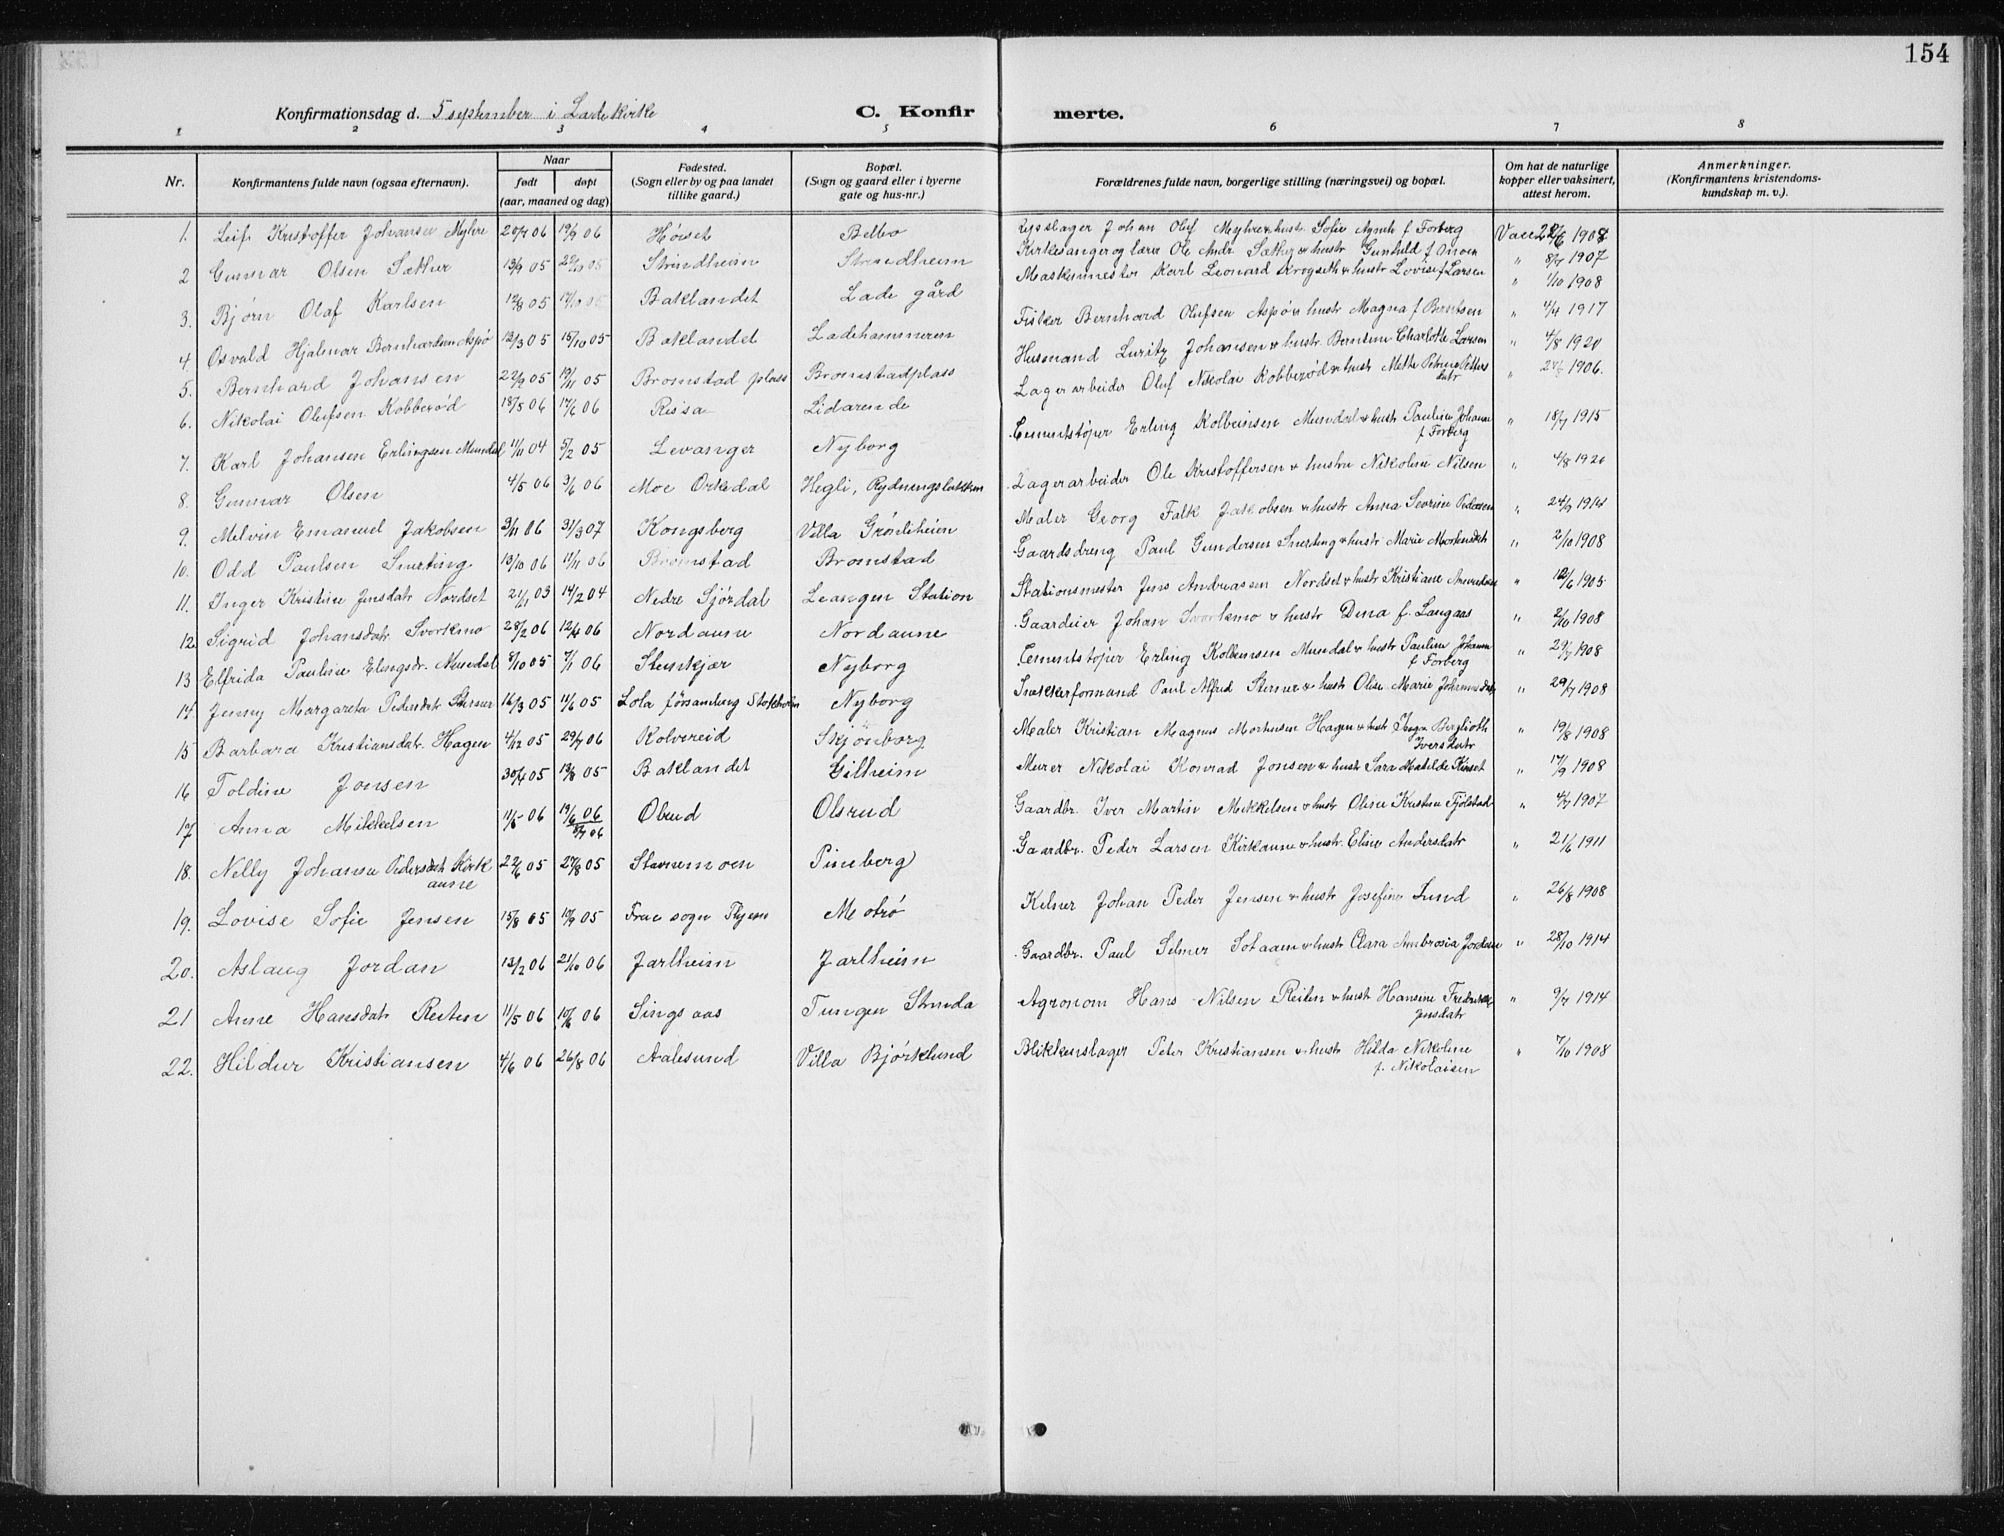 154
Konfirmationsdag d. 5 september i Lade kirke C. Konfirmerte.
1 2 3 4 5 6 7 8
Nr. Konfirmantens fulde navn (ogsaa efternavn). Naar født døpt (aar, maaned og dag) Fødested. (Sogn eller by og paa landet tillike gaard.) Bopæl. (Sogn og gaard eller i byerne gate og hus-nr.) Forældrenes fulde navn, borgerlige stilling (næringsvei) og bopæl. Om hat de naturlige kopper eller vaksinert, attest herom. Anmerkninger. (Konfirmantens kristendomskundskap m. v.).
1. Leif Kristoffer Johansen Myhre 20/7 06 19/9 06 Høiset Belbo Repslager Johan Olef Myhre & hustr Sofie Agnete f Forberg Vacc 22/6 1908
2 Gunnar Olsen Sæther 13/9 05 29/10 05 Strindheim Strindheim Kirkesanger og lærer Ole Andr. Sæther & hustr Gunhild f Moen " 8/7 1907
3. Bjørn Olaf Karlsen 12/8 05 17/10 05 Baklandet Lade gård Maskinmester Karl Leonard Krogseth & hustr Lovise f Larsen " 1/10 1908
4. Osvald Hjalmar Bernhardsen Aspø 12/3 05 15/10 05 Baklandet Ladehammeren Fisker Bernhard Olufsen Aspø & hustr Magna f Berntsen " 4/4 1917
5. Bernhard Johansen 22/9 05 19/11 05 Bromstad plass Bromstadplass Husmand Luritz Johansen & hustr. Berntine Charlotte Larsen " 4/8 1920
6. Nikolai Olufsen Kobberød 18/5 06 17/6 06 Rissa Lidarende Lagerarbeider Oluf Nikolai Kobberød & hustr Mette Petrine Petters datr " 1906.
7. Karl Johansen Erlingsen Mundal 11/11 04 5/2 05 Levanger Nyborg Cementstøper Erling Kolbeinsen Mundal & hustr Pauline Johanne f Forberg " 18/7 1915
8. Gunnar Olsen 4/5 06 3/6 06 Moe Orkedal Hegli, Rydningsløkken Lagerarbeider Ole Kristoffersen & hustru Nikoline Nilsen " 4/8 1920
9. Melvin Emanuel Jakobsen 3/11 06 31/3 07 Kongsberg Villa Grønliheien Maler Georg Falk Jakobsen & hustr Anna Severine Pedersen " 24/9 1914
10. Odd Paulsen Snerting 13/10 06 11/11 06 Bromstad Bromstad Gaardsdreng Paul Gundersen Snerting & hustr Marie Mortensdatr " 2/10 1908
11. Inger Kristine Jensdatr Nordset 21/11 03 14/2 04 Nedre Sjørdal Leangen Station Stationsmester Jens Andreassen Nordset & hustr Kristiane Amundsen " 12/6 1905
12. Sigrid Johansdatr Svorkmo 28/2 06 12/4 06 Nordaune Nordaune Gaardeier Johan Svorkmo & hustr Dina f. Langaas " 2/10 1908
13 Elfrida Pauline Elingsdr. Mundal 8/10 05 7/1 06 Stenkjær Nyborg Cementstøper Erling Kolbeinsen Mundal & hustr Pauline Johanne f Forberg " 29/7 1908
14. Jenny Margareta Pedersdatr Sterner 16/3 05 11/6 05 Lola førsamling Stokholm Nyborg Snekkerformand Paul Alfred Sterner & hustr Olise Marie Johannsdatr " 29/7 1908
15 Barbara Kristiansdatr. Hagen 4/12 05 29/7 06 Kolvereid Skjönborg Maler Kristian Magnus Mortensen Hagen & hustr Inga Berglioth Iversdatr " 19/8 1908
16 Toldine Jonsen 30/4 05 13/8 05 Baklandet Gilheim Murer Nikolai Konrad Jonsen & hustr Sara Matilde Kinset " 17/9 1908
17 Anna Mikkelsen 11/5 06 19/6 06 8/7 06 Olsrud Gaardbr. Iver Martin Mikkelsen & hustr Oline Kristine Fjølstad " 4/7 1907
18. Nelly Johanne Pedersdatr Kirk aune 22/6 05 27/8 05 Stavnemoen Pineberg Gaardbr. Peder Larsen Kirkaune & hustr. Elise Andersdatr " 21/6 1911
19. Lovise Sofie Jensen 15/8 05 10/9 05 Frue sogn Thjem Motrø Kelner Johan Peder Jensen & hustr Josefine Lund " 26/8 1908
20. Aslaug Jordan 13/2 06 21/10 06 Jarlheim Jarlheim Gaardbr. Paul Selmer Sotaaen & hustr Clara Ambrosia Jordan " 28/10 1914
21 Anne Hansdatr Reiten 11/5 06 10/6 06 Singsaas Tungen Strinda Agronom Hans Nilsen Reiten & hustr Hansine Fredrikke Jensdatr " 9/7 1914
22. Hildur Kristiansen 4/6 06 26/8 06 Aalesund Villa Bjørklund Blikkenslager Peter Kristiansen & hustr Hilda Nikoline f. Nikolaisen " 7/10 1908